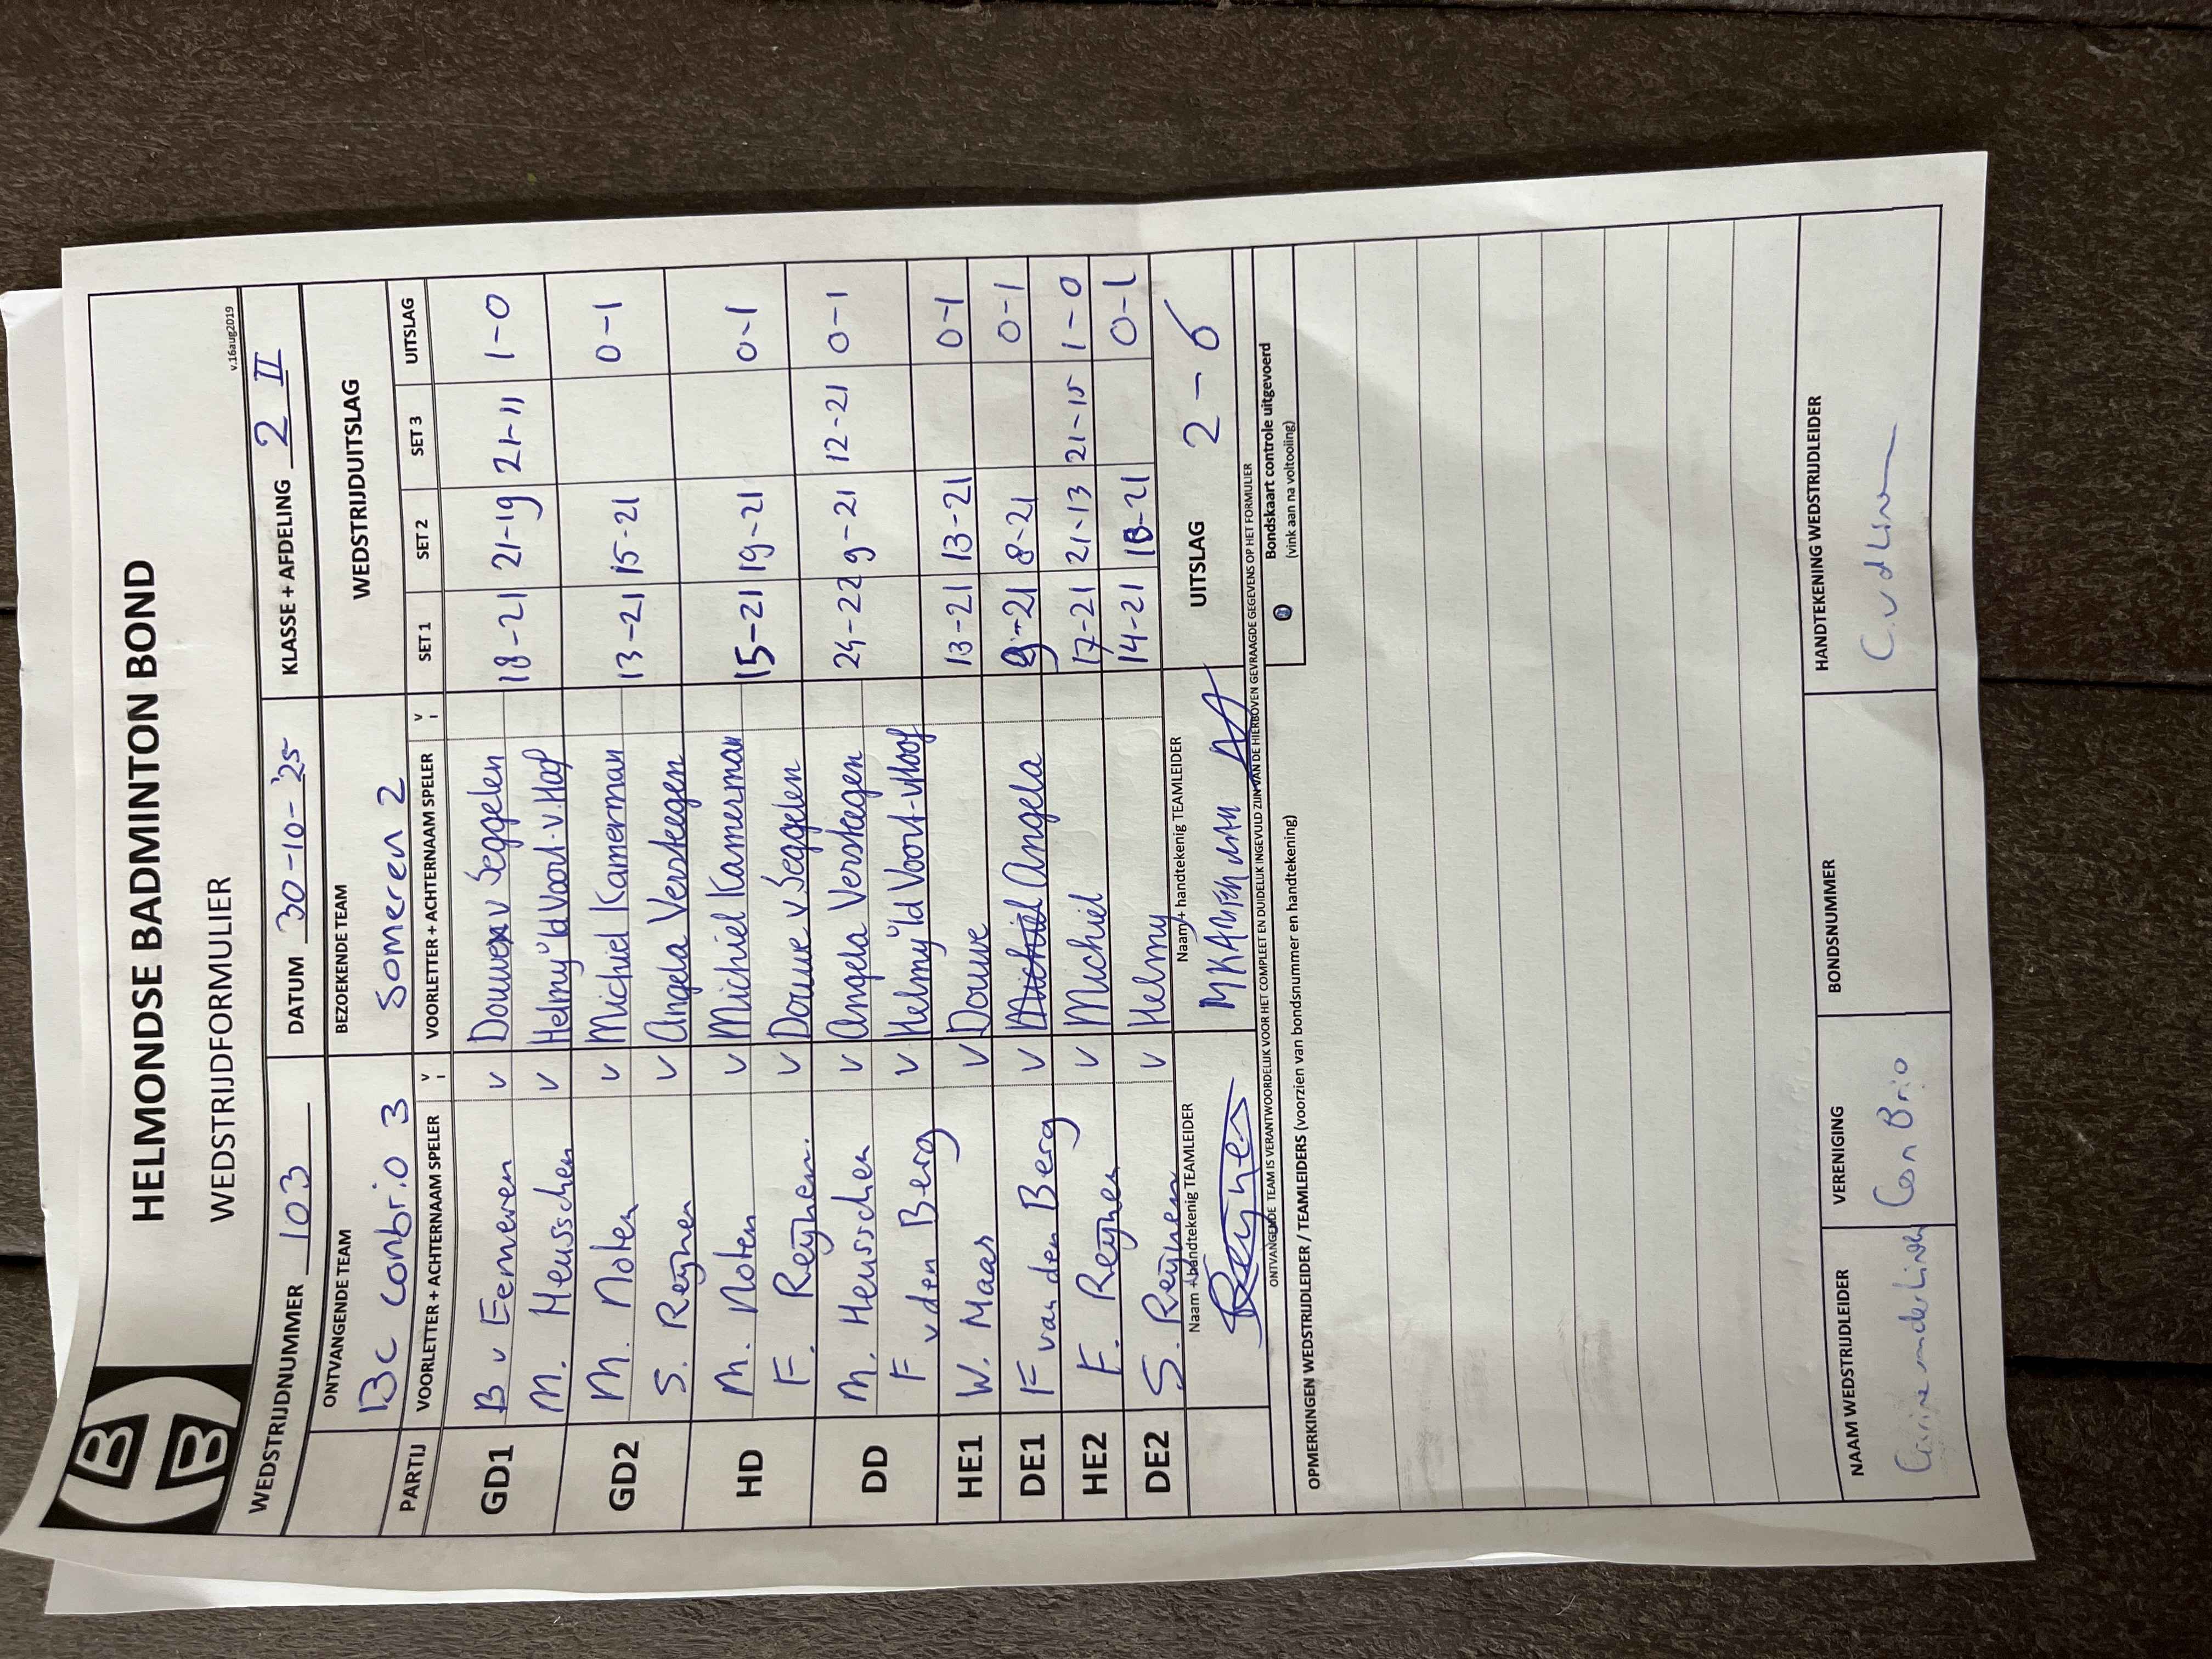 HELMONDSE BADMINTON BOND
WEDSTRIJDFORMULIER
v.16aug2019
WEDSTRIJDNUMMER 103 DATUM 30-10-'25 KLASSE + AFDELING 2 II
ONTVANGENDE TEAM BEZOEKENDE TEAM WEDSTRIJDUITSLAG
BC conbrio 3 Someren 2
PARTIJ VOORLETTER + ACHTERNAAM SPELER V I VOORLETTER + ACHTERNAAM SPELER V I SET 1 SET 2 SET 3 UITSLAG
GD1 B v Eemeren v Douwe v Seggelen 18-21 21-19 21-11 1-0
M. Heusschen v Helmy v/d Voort-v.Hoof
GD2 M. Noten v Michiel Kamerman 13-21 15-21 0-1
S. Reijnen v Angela Verstegen
HD M. Noten v Michiel Kamerman 15-21 19-21 0-1
F. Reijnen. v Douwe v Seggelen
DD M. Heusschen v Angela Verstegen 24-22 9-21 12-21 0-1
F v den Berg v Helmy v/d Voort-vHoof
HE1 W. Maas v Douwe 13-21 13-21 0-1
DE1 F van den Berg v Michiel Angela 9-21 8-21 0-1
HE2 F. Reijnen v Michiel 17-21 21-13 21-15 1-0
DE2 S. Reijnen v Helmy 14-21 18-21 0-1
Naam + handtekenig TEAMLEIDER Naam + handtekenig TEAMLEIDER UITSLAG 2-6
Reijnen M KAMERMAN
ONTVANGENDE TEAM IS VERANTWOORDELIJK VOOR HET COMPLEET EN DUIDELIJK INGEVULD ZIJN VAN DE HIERBOVEN GEVRAAGDE GEGEVENS OP HET FORMULIER
OPMERKINGEN WEDSTRIJDLEIDER / TEAMLEIDERS (voorzien van bondsnummer en handtekening)
Bondskaart controle uitgevoerd
(vink aan na voltooling)
NAAM WEDSTRIJDLEIDER VERENIGING BONDSNUMMER HANDTEKENING WEDSTRIJDLEIDER
van der Linden Con Brio C. vd Linden